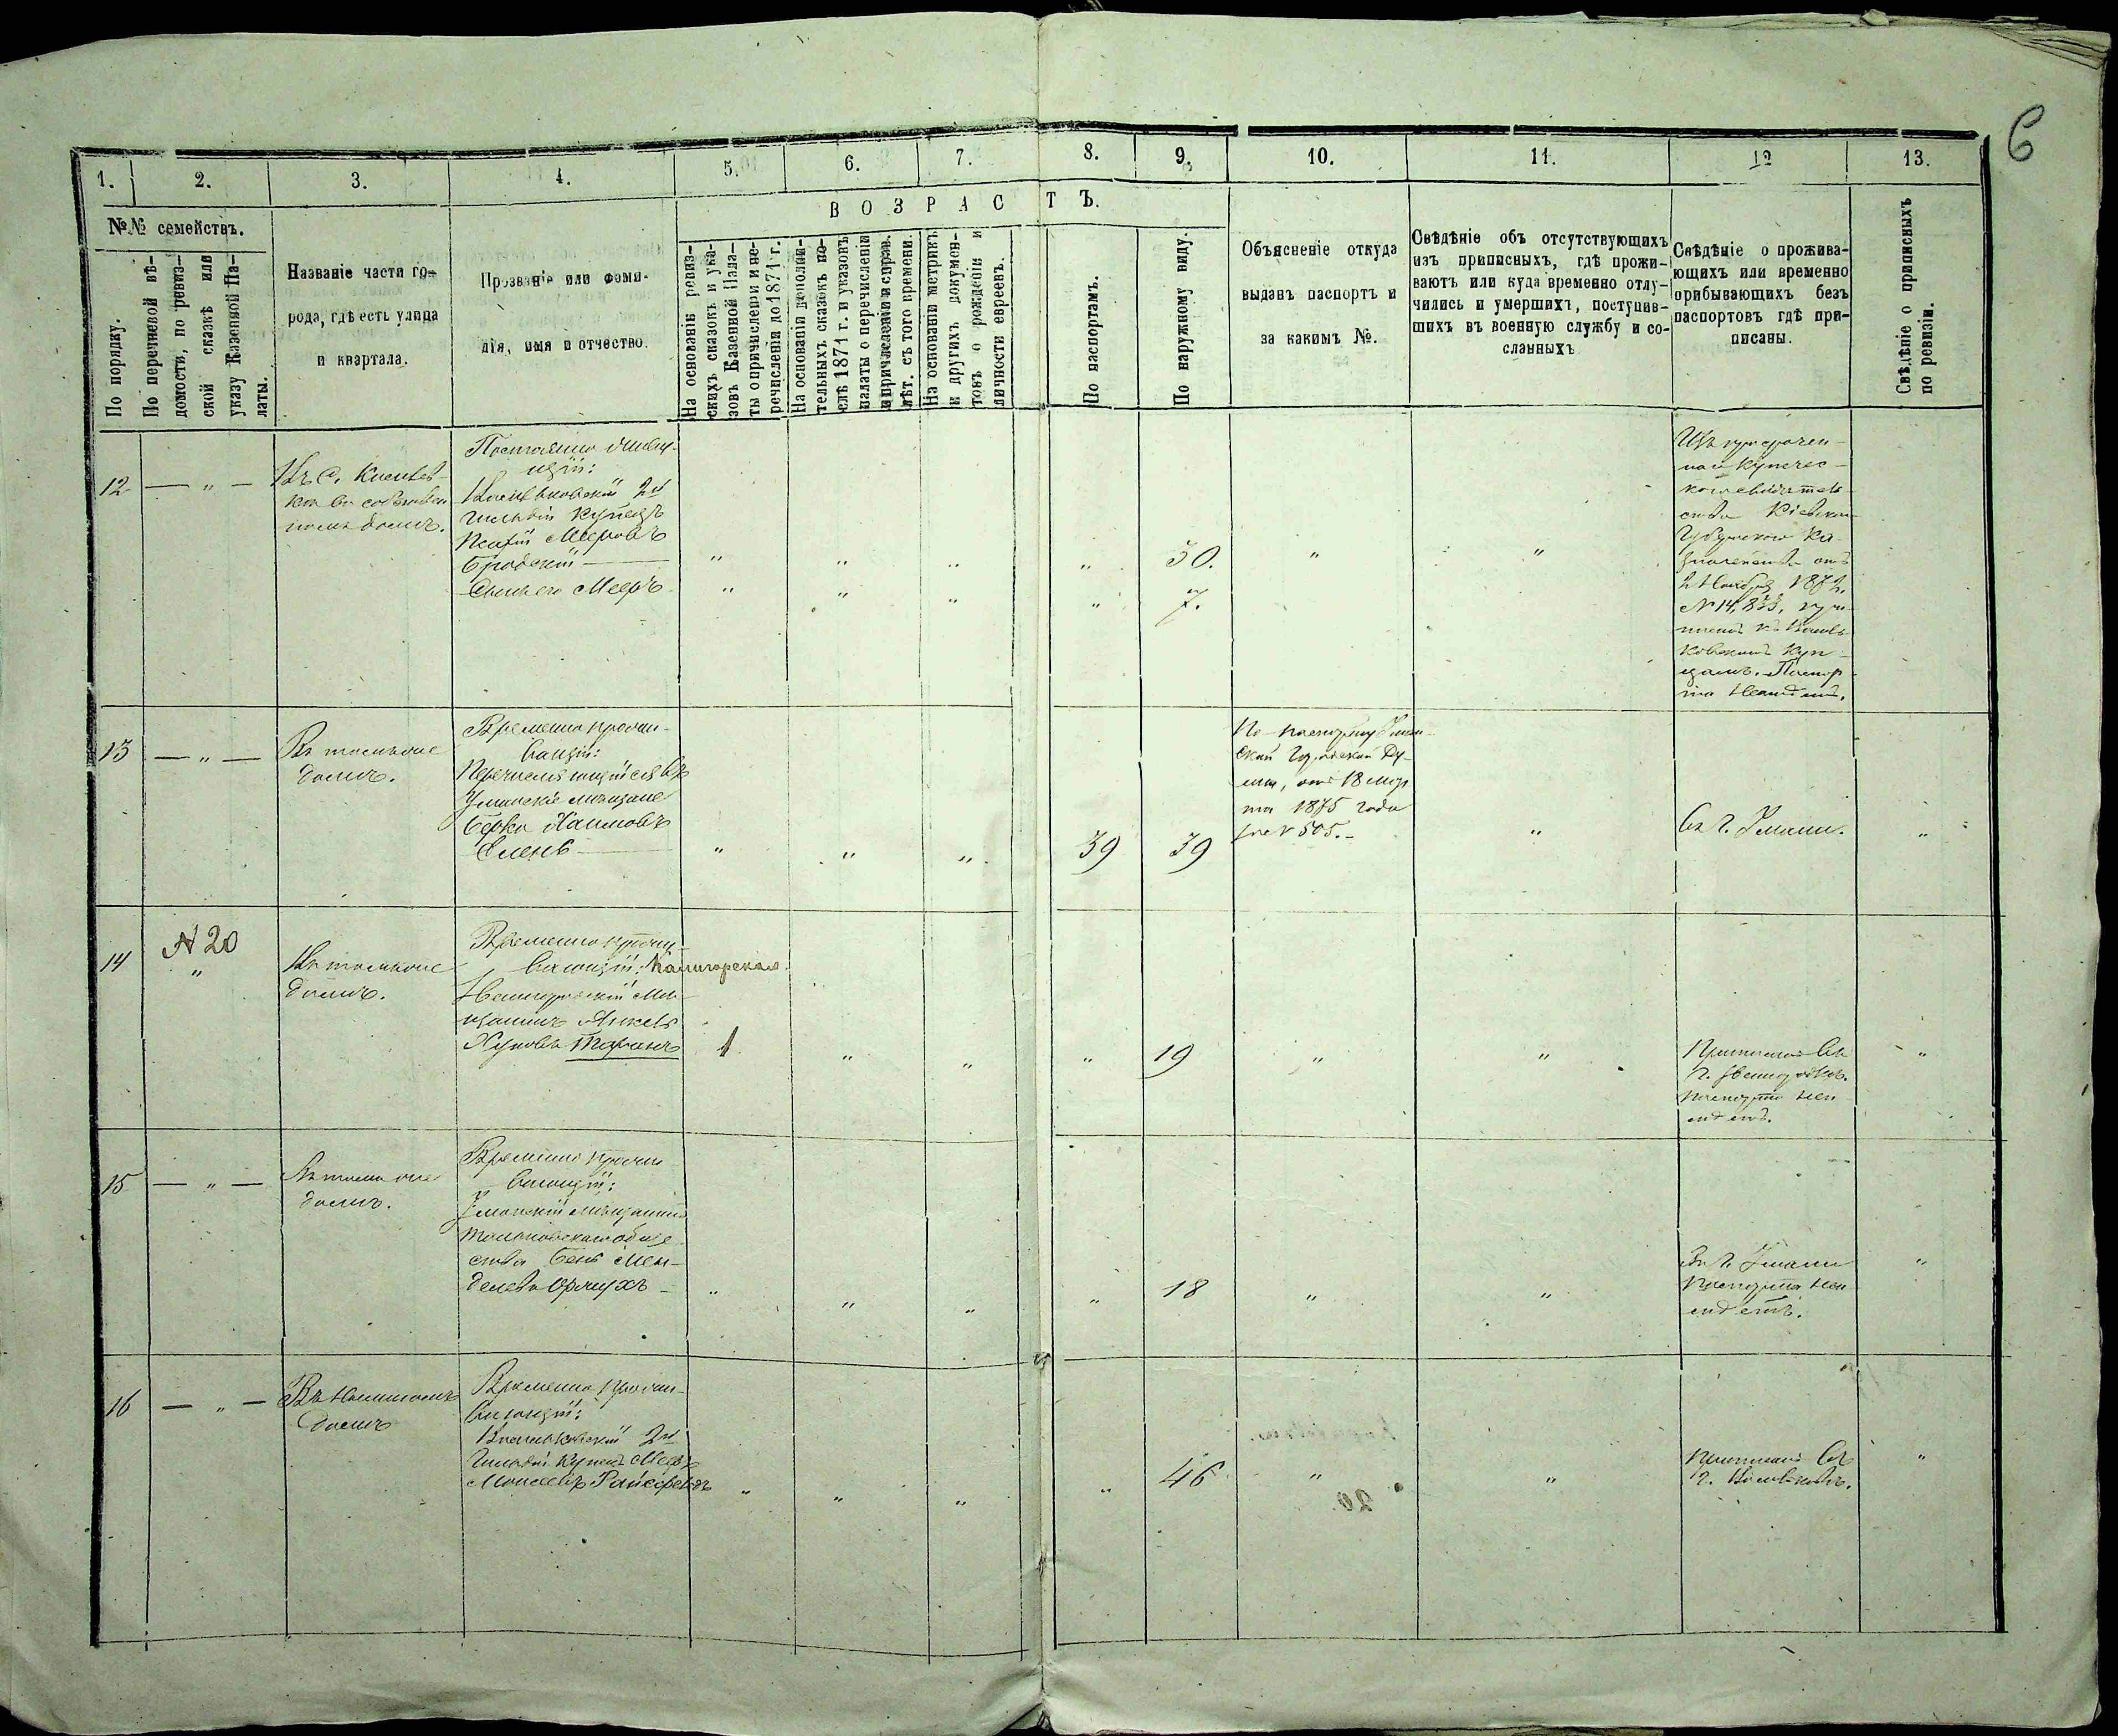 6
1. 2. 3. 4. 5. 6. 7. 8. 9. 10. 11. 12 13.
№№ семействъ.
По порядку.
По перечневой вѣ-
домости, по ревиз-
ской сказкѣ или
указу Казенной Па-
латы.
Названіе части го-
рода, гдѣ есть улица
и квартала.
Прозваніе или фами-
лія, имя и отчество.
ВОЗРАСТЪ.
На основаніи ревиз-
скихъ сказокъ и ука-
зовъ Казенной Пала-
ты о причисленіи и пе-
речисленіи до 1871 г.
На основаніи дополни-
тельныхъ сказокъ по-
слѣ 1871 г. и указовъ
палаты о перечисленіи
и причисленіи и справ.
лѣт. съ того времени.
На основаніи метрикъ
и другихъ докумен-
товъ о рожденіи и
личности евреевъ.
По паспортамъ.
По наружному виду.
Объясненіе откуда
выданъ паспортъ и
за какимъ №.
Свѣдѣніе объ отсутствующихъ
изъ приписныхъ, гдѣ прожи-
ваютъ или куда временно отлу-
чились и умершихъ, поступив-
шихъ въ военную службу и со-
сланныхъ
Свѣдѣніе о прожива-
ющихъ или временно
прибывающихъ безъ
паспортовъ гдѣ при-
писаны.
Свѣдѣніе о приписныхъ
по ревизіи.
12 — " —
Въ с.
домѣ.
Постоянно живу-
щій:
Васильковскій 2й
гильдіи купецъ
Мееровъ
Бродскій — " " " " 30. " "
Сынъ его Мееръ " " " " 7.
купечес-
каго свидѣтель-
ства Кіевскаго
Губернскаго Ка-
значейства отъ
2 Ноября 1872
№ 14,833,
къ Василь-
ковскимъ Куп-
цамъ. Паспор-
та неимѣетъ.
13 — " —
Въ томъ же
домѣ.
Временно прожи-
вающій:
Перечисляющійся въ
Уманскіе мѣщане
Берко Хаимовъ
Слень — " " " 39 39
По паспорту Уман-
ской Городской Ду-
мы, отъ 18 мар-
та 1875 года
за № 505. —
"
Въ г. Умани. "
14 № 20
"
Въ томъ же
домѣ.
Временно прожи-
вающій: Калигорская
Звенигородскій мѣ-
щанинъ
1 " " " 19 " "
Приписанъ въ
г. Звенигородкѣ.
паспорта неи-
мѣетъ.
"
15 — " —
Въ томъ же
домѣ.
Временно прожи-
вающій:
Уманскій мѣщанинъ
Тальновскаго обще-
ства Бень Мен-
делевъ — " " " " 18 " "
Въ г. Умани
Паспорта неи-
мѣетъ.
"
16 — " —
домѣ
Временно прожи-
вающій:
Васильковскій 2й
гильдіи купецъ Мееръ
Моисеевъ " " " " 46 " "
Приписанъ въ
г. Васильковѣ.
"